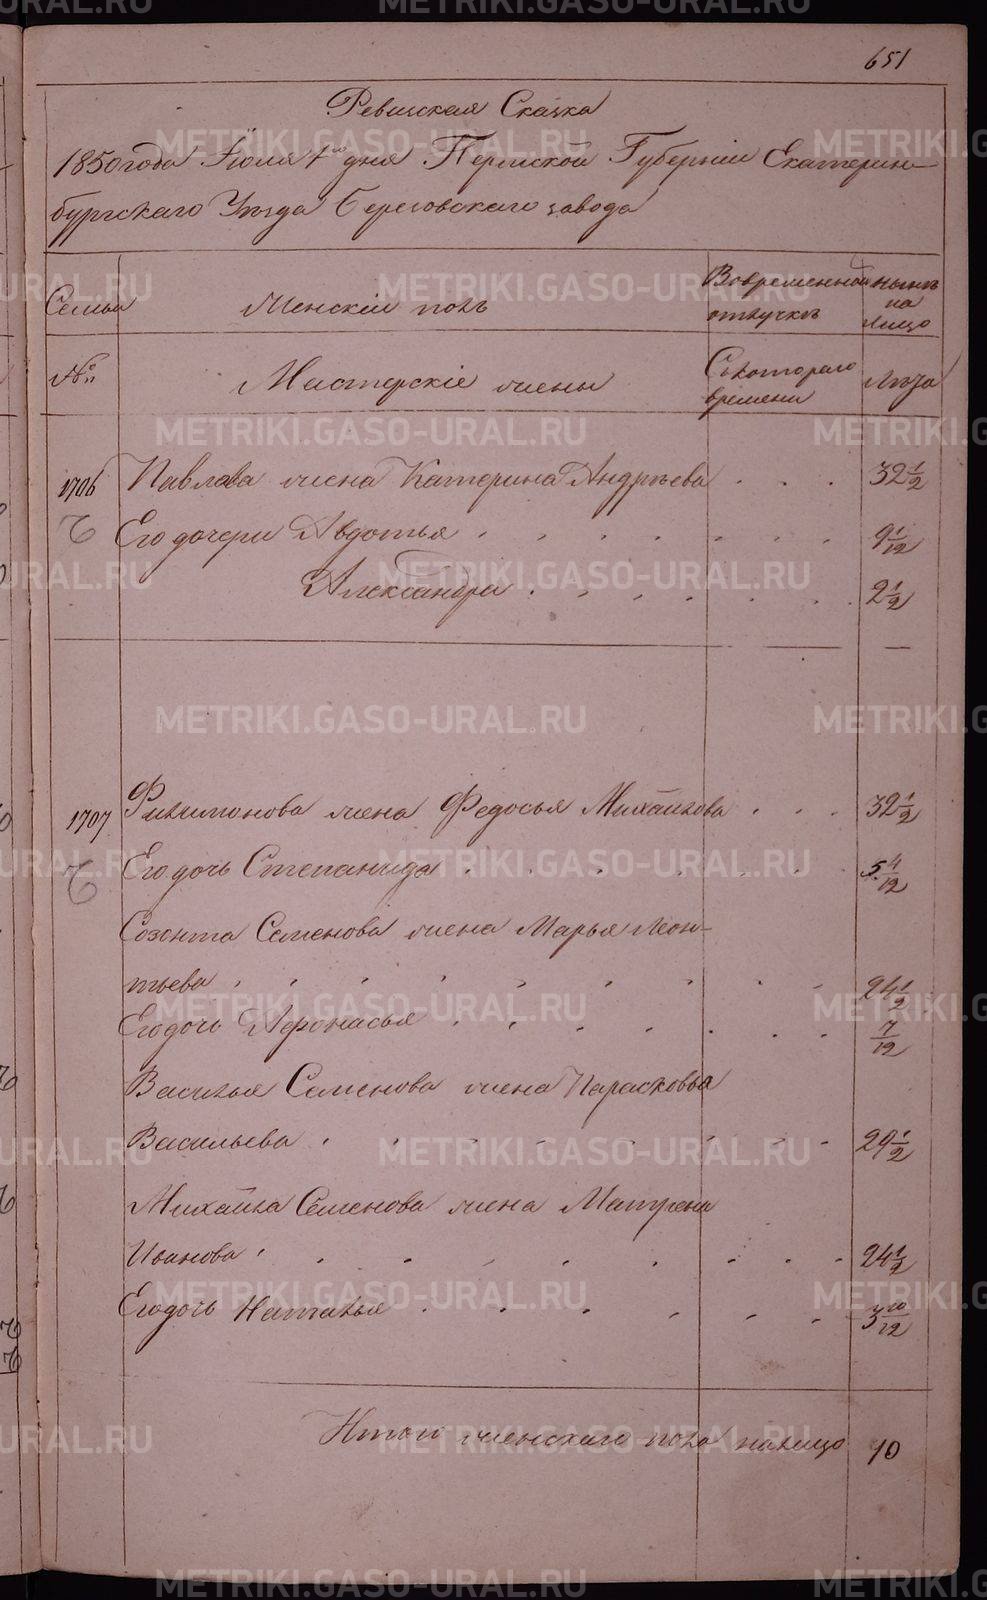 651
Ревизская Сказка
1850 года Июля 1го дня Пермской Губернiи Екатерин-
бургскаго Уѣзда Березовскаго завода
Семьи
Женскiй полъ
Вовременной отлучкѣ
нынѣ на лицо
№
Мастерскiе жены
Съкотораго времени
Лѣта
1706 Павлова жена Катерина Андрѣева . . . 32 1/2
Его дочери Авдотья . . . . . . . 9 1/12
Александра . . . . . . . 2 1/2
1707 Филимонова жена Федосья Михайлова . . . 32 1/2
Его дочь Степанида . . . . . . 5 4/12
Созонта Семенова жена Марья Леон-
тьева . . . . . . . . 24 1/2
Его дочь Афонасья . . . . . . . 7/12
Василья Семенова жена Парасковья
Васильева . . . . . . . . 29 1/2
Михайла Семенова жена Матрена
Иванова . . . . . . . . 24 1/2
Его дочь Наталья . . . . . . 3 10/12
Итого женскаго пола налицо 10
METRIKI.GASO-URAL.RU